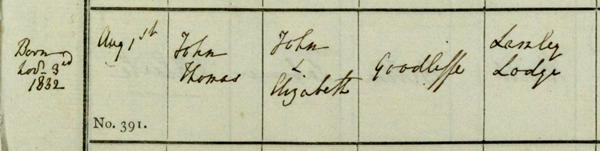 Born
Novr. 3rd
1832
Aug 1st
No. 391.
John
Thomas
John
&
Elizabeth
Goodliffe
Lodge